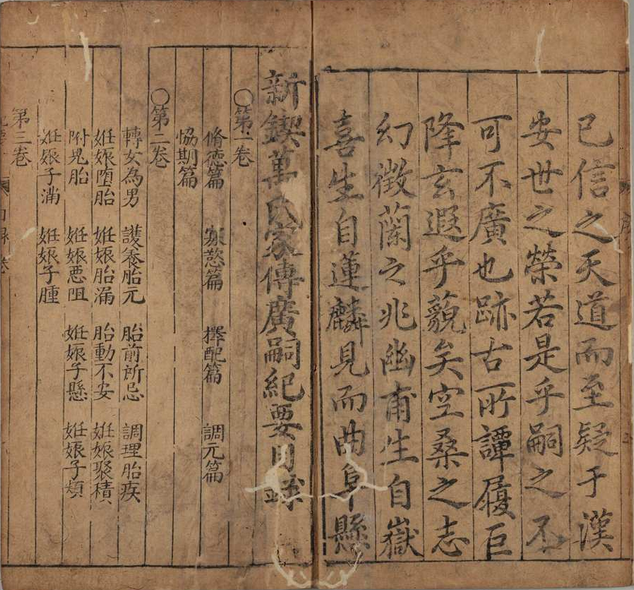 已信之天道而至疑于漢
安世之榮若是乎嗣之不
可不廣也跡古所譚履巨
降玄遐乎藐矣空桑之志
幻徴蘭之兆幽甫生自嶽
喜生自蓮麟見而曲阜懸
新鍥萬氏家傳廣嗣紀要目錄
○第一卷
脩德篇 寡慾篇 擇配篇 調元篇
恊期篇
○第二卷
轉女為男 護養胎元 胎前所忌 調理胎疾
妊娠墮胎 妊娠胎漏 胎動不安 妊娠聚積
附鬼胎 妊娠惡阻 妊娠子懸 妊娠子煩
妊娠子滿 妊娠子腫
第三卷